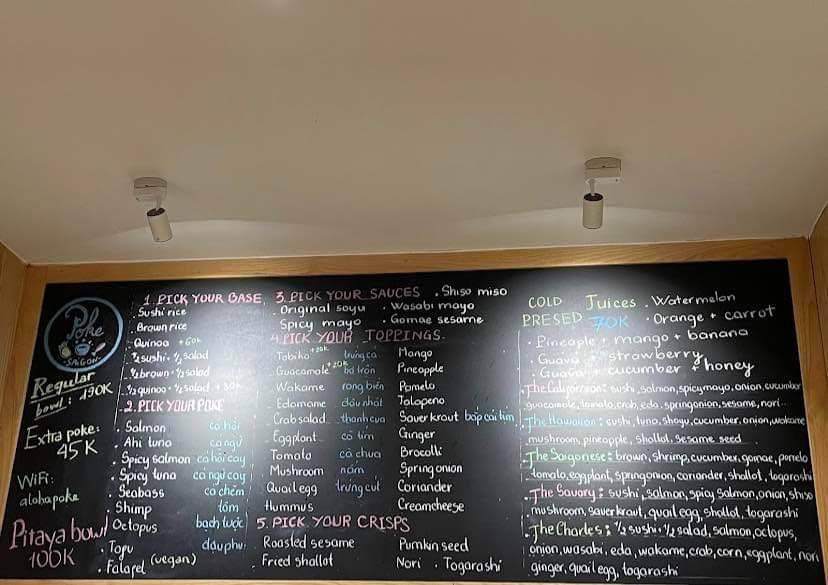 Poke
SAIGON
Regular
bowl: 190K
Extra poke:
45K
WiFi:
alohapoke
Pitaya bowl
100K
1. PICK YOUR BASE
Sushi rice
Brown rice
Quinoa +60k
½ sushi · ½ salad
½ brown · ½ salad
½ quinoa · ½ salad + 30k
2. PICK YOUR POKE
Salmon cá hồi
Ahi tuna cá ngừ
Spicy salmon cá hồi cay
Spicy tuna cá ngừ cay
Seabass cá chẽm
Shimp tôm
Octopus bạch tuộc
Tofu đậu phụ
Falafel (vegan)
3. PICK YOUR SAUCES · Shiso miso
Original soyu · Wasabi mayo
Spicy mayo · Gomae sesame
4. PICK YOUR TOPPINGS
Tobiko +20k trứng cá
Guacamole +20k bơ trộn
Wakame rong biển
Edamame đậu nhật
Crab salad thanh cua
Eggplant cà tím
Tomato cà chua
Mushroom nấm
Quail egg trứng cút
Hummus
Mango
Pineapple
Pomelo
Jalapeno
Sauerkraut bắp cải tím
Ginger
Brocolli
Spring onion
Coriander
Creamcheese
5. PICK YOUR CRISPS
Roasted sesame Pumkin seed
Fried shallot Nori · Togarashi
COLD PRESED Juices 70K
· Watermelon
· Orange + carrot
· Pineaple + mango + banana
· Guava + strawberry
· Guava + cucumber + honey
· The Californian: sushi, salmon, spicy mayo, onion, cucumber
guacamole, tomato, crab, eda, springonion, sesame, nori.
· The Hawaiian: sushi, tuna, shoyu, cucumber, onion, wakame
mushroom, pineapple, shallot, sesame seed
· The Saigonese: brown, shrimp, cucumber, gomae, pomelo
tomato, eggplant, springonion, coriander, shallot, togarashi
· The Savory: sushi, salmon, spicy salmon, onion, shiso
mushroom, sauerkraut, quail egg, shallot, togarashi
· The Charles: ½ sushi + ½ salad, salmon, octopus,
onion, wasabi, eda, wakame, crab, corn, eggplant, nori
ginger, quail egg, togarashi